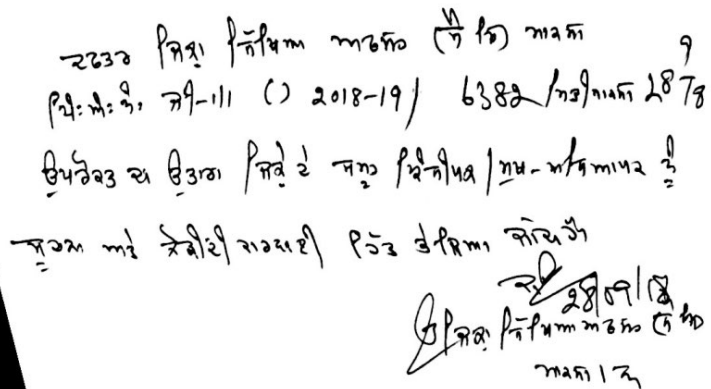 ਦਫਤਰ ਜਿਲ੍ਹਾ ਸਿੱਖਿਆ ਅਫਸਰ (ਸੈ ਸਿ) ਮਾਨਸਾ
ਪਿੱ:ਅੰ: ਨੰ: ਜੀ-111 () 2018-19/ 6382 ਮਿਤੀ ਮਾਨਸਾ 28/9/18
ਉਪਰੋਕਤ ਦਾ ਉਤਾਰਾ ਜਿਲ੍ਹੇ ਦੇ ਸਮੂਹ ਪ੍ਰਿੰਸੀਪਲ/ਮੁੱਖ-ਅਧਿਆਪਕ ਨੂੰ
ਸੂਚਨਾ ਅਤੇ ਲੋੜੀਂਦੀ ਕਾਰਵਾਈ ਹਿੱਤ ਭੇਜਿਆ ਜਾਂਦਾ ਹੈ।
28/09/18
ਉਪ ਜਿਲ੍ਹਾ ਸਿੱਖਿਆ ਅਫਸਰ (ਸੈ ਸਿ)
ਮਾਨਸਾ।